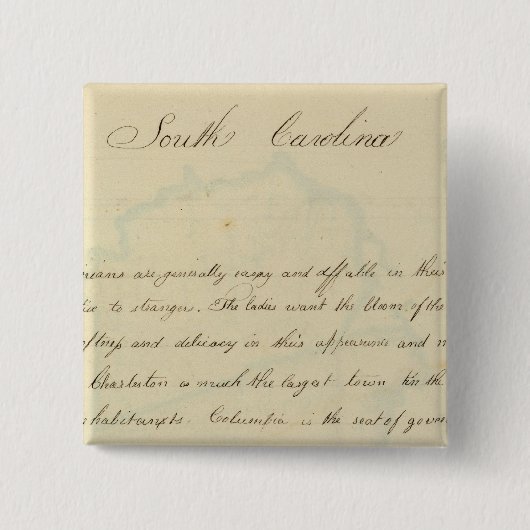 South Carolina
inians are generally easy and affable in their
tive to strangers. The ladies want the bloom of the
oftness and delicacy in their appearance and m
Charleston is much the largest town in the
nhabitants. Columbia is the seat of gover